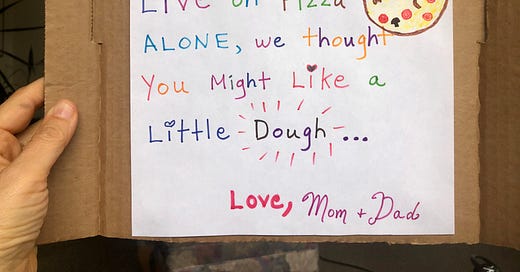 Live on Pizza
ALONE, we thought
You Might Like a
Little Dough...
Love, Mom + Dad